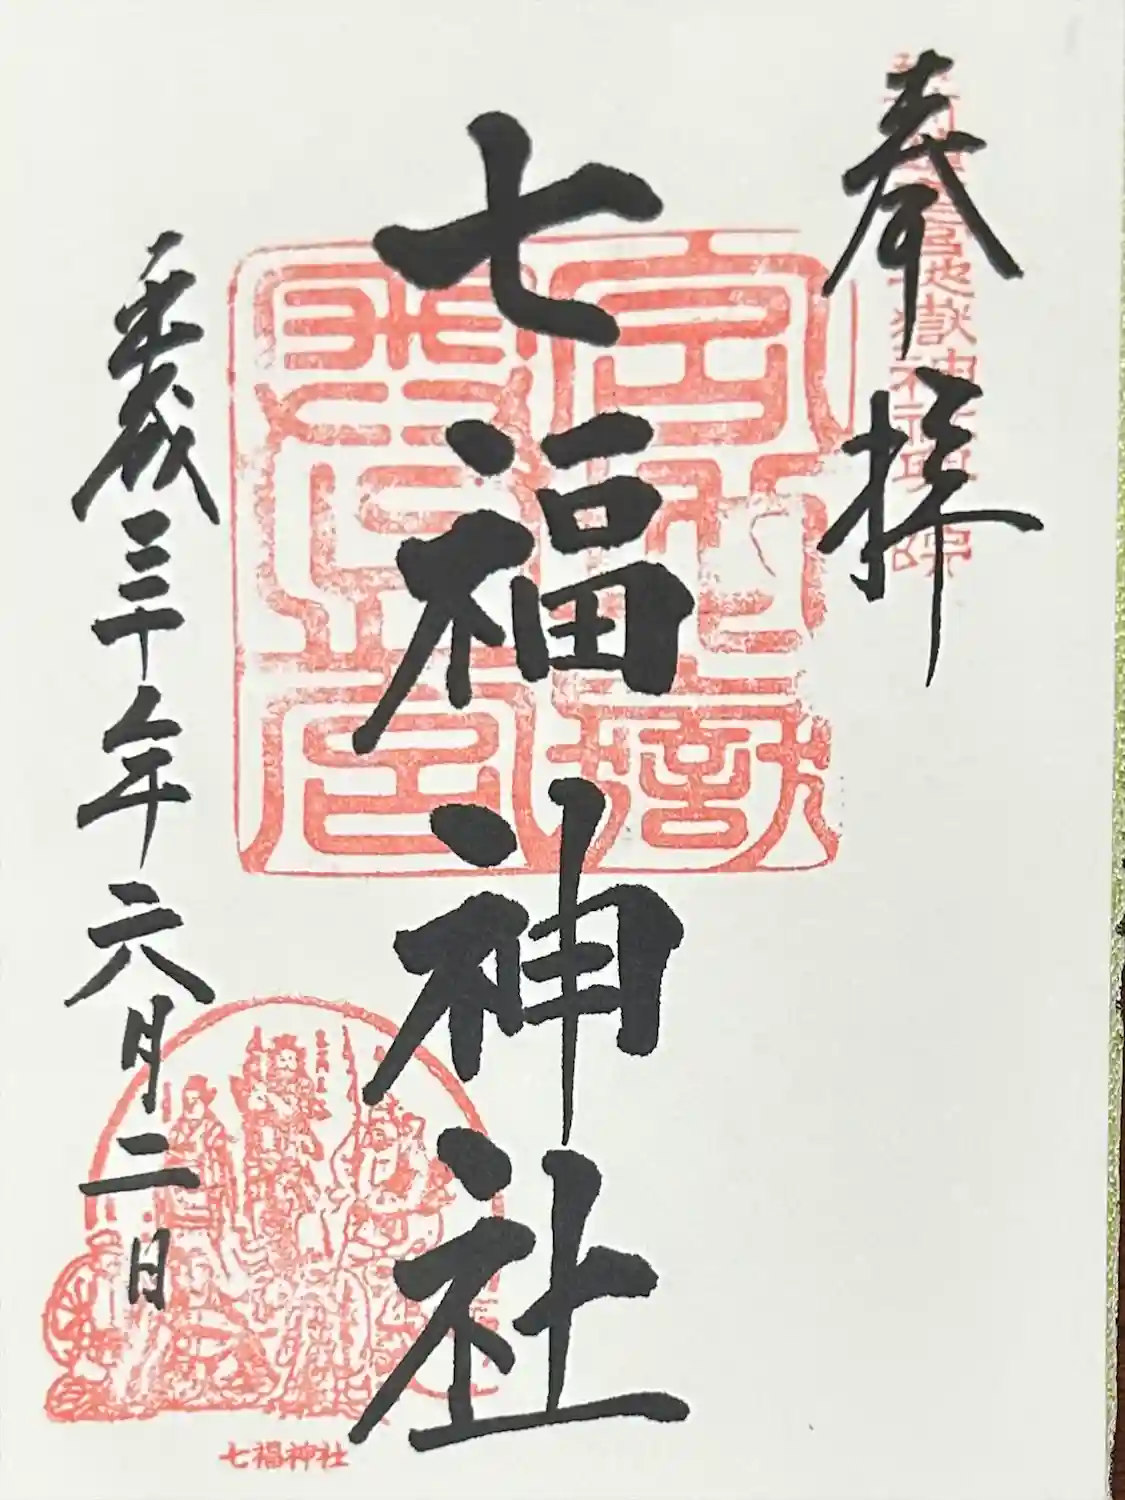 奉拝
宮地嶽
七福神社
平成三十年六月二日
七福神社